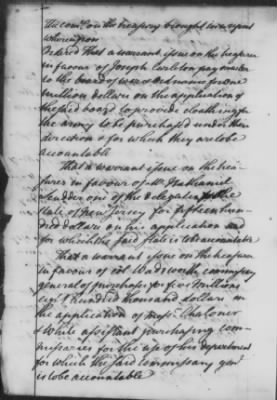 The comee on the treasury brought in a report
whereupon
Ordered That a warrant issue on the treasurer
in favour of Joseph Carleton pay master
to the board of war & ordnance for one
million dollars on the application of
the said board to provide cloathing for
the army to be purchased under their
direction & for which they are to be
accountable
That a warrant issue on the trea-
surer in favour of Mr Nathaniel
Scudder one of the delegates for the
state of new Jersey for fifteen hun-
dred dollars on his application and
for which the said state is to be accountable
That a warrant issue on the treasurer
in favour of col Wadsworth commissary
general of purchases for five millions
eight hundred thousand dollars on
the application of Messrs Chaloner
& White assistant purchasing com-
missaries for the use of his department
for which the said commissary genl
is to be accountable